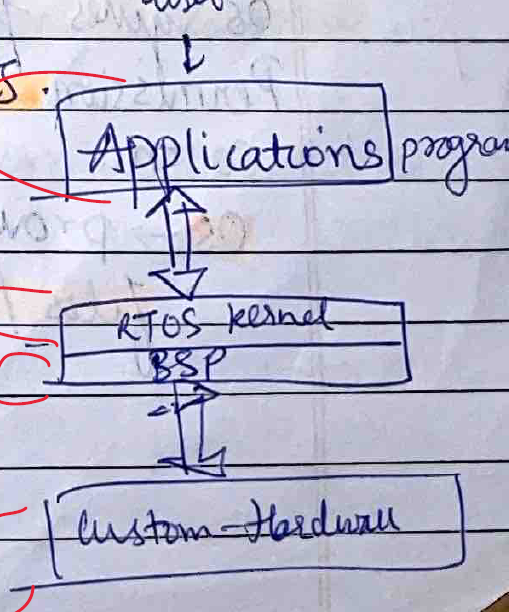 5.
Applications program
RTOS kernel
BSP
Custom-Hardware